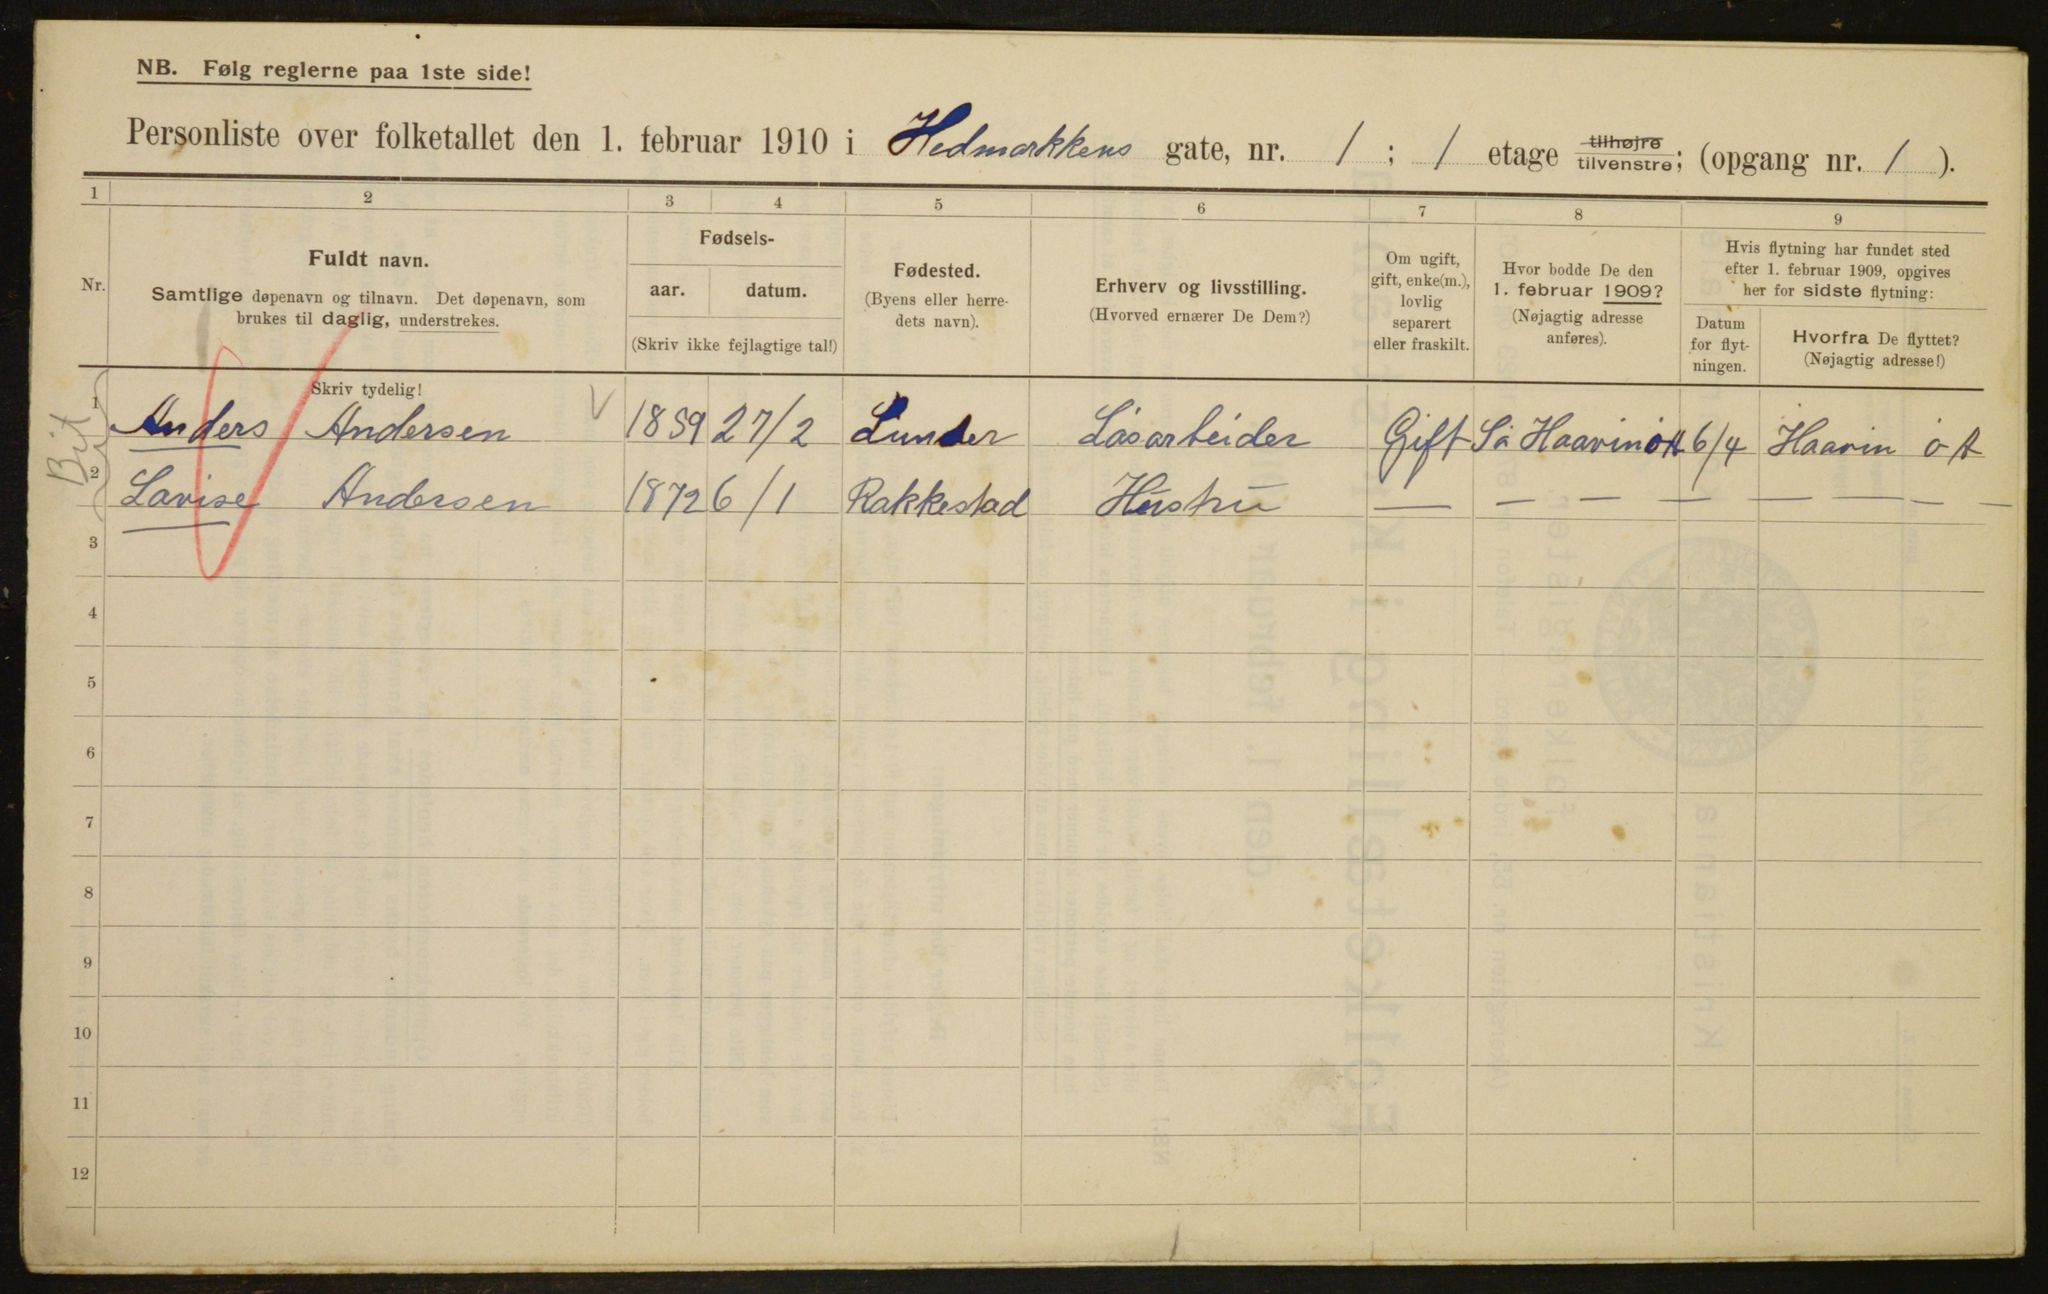 NB. Følg reglerne paa 1ste side!
Personliste over folketallet den 1. februar 1910 i Hedmarkkens gate, nr. 1 ; 1 etage tilhøjre tilvenstre; (opgang nr. 1 ).
1 2 3 4 5 6 7 8 9
Nr.
Fuldt navn.
Samtlige døpenavn og tilnavn. Det døpenavn, som
brukes til daglig, understrekes.
Skriv tydelig!
Fødsels-
aar. datum.
(Skriv ikke fejlagtige tal!)
Fødested.
(Byens eller herre-
dets navn).
Erhverv og livsstilling.
(Hvorved ernærer De Dem?)
Om ugift,
gift, enke(m.),
lovlig
separert
eller fraskilt.
Hvor bodde De den
1. februar 1909?
(Nøjagtig adresse
anføres).
Hvis flytning har fundet sted
efter 1. februar 1909, opgives
her for sidste flytning:
Datum
for flyt-
ningen.
Hvorfra De flyttet?
(Nøjagtig adresse!)
Bit
1 Anders Andersen 1859 27/2 Lunder Løsarbeider Gift Haavin 6/4 Haavin
2 Lavise Andersen 1872 6/1 Rakkestad Hustru — — — — — — — —
3
4
5
6
7
8
9
10
11
12